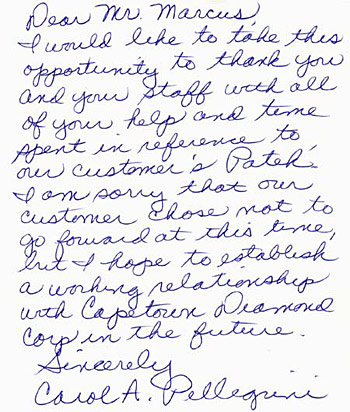 Dear Mr. Marcus,
I would like to take this
opportunity to thank you
and your staff with all
of your help and time
spent in reference to
our customer's Patek.
I am sorry that our
customer chose not to
go forward at this time,
but I hope to establish
a working relationship
with Capetown Diamond
Corp in the future.
Sincerely
Carol A. Pellegrini